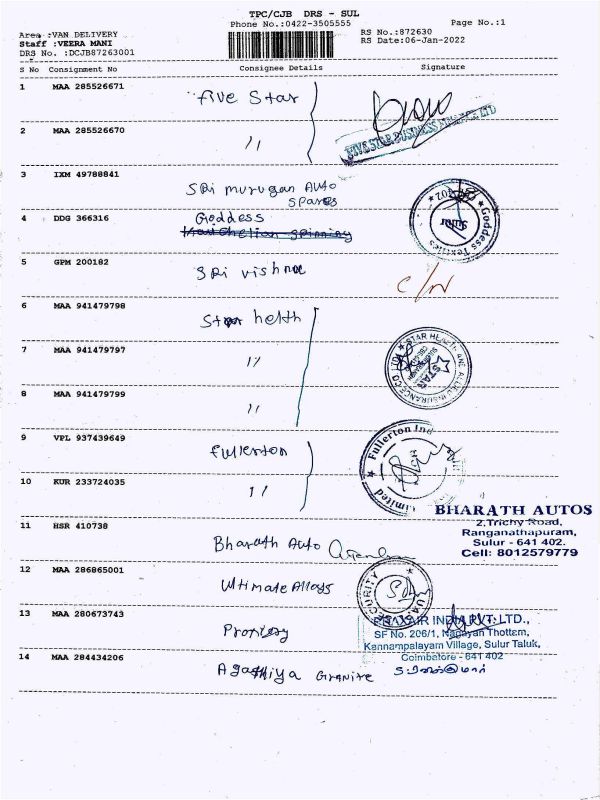 TPC/CJB DRS - SUL
Phone No.:0422-3505555
Page No.:1
Area :VAN DELIVERY
Staff :VEERA MANI
DRS No. :DCJB87263001
RS No.:872630
RS Date:06-Jan-2022
S No Consignment No Consignee Details Signature
1 MAA 285526671 Five Star
FIVE STAR BUSINESS FINANCE LTD
2 MAA 285526670 ''
3 IXM 49788841 Sri murugan Auto
Spares
4 DDG 366316 Goddess
Goddess Textiles
Sulur
5 GPM 200182 Sri vishnu
C/N
6 MAA 941479798 Star helth
7 MAA 941479797 ''
STAR HEALTH AND ALLIED INSURANCE CO LTD
8 MAA 941479799 ''
9 VPL 937439649 Fullerton
Fullerton Ind
Limited
10 KUR 233724035 ''
BHARATH AUTOS
2,Trichy Road,
Ranganathapuram,
Sulur - 641 402.
Cell: 8012579779
11 HSR 410738 Bharath Auto
12 MAA 286865001 Ultimate Alloys
SECURITY
13 MAA 280673743
INDIA PVT. LTD.,
SF No. 206/1, Nagayan Thottam,
Kannampalayam Village, Sulur Taluk,
Coimbatore - 641 402
14 MAA 284434206 Agasthiya Granite